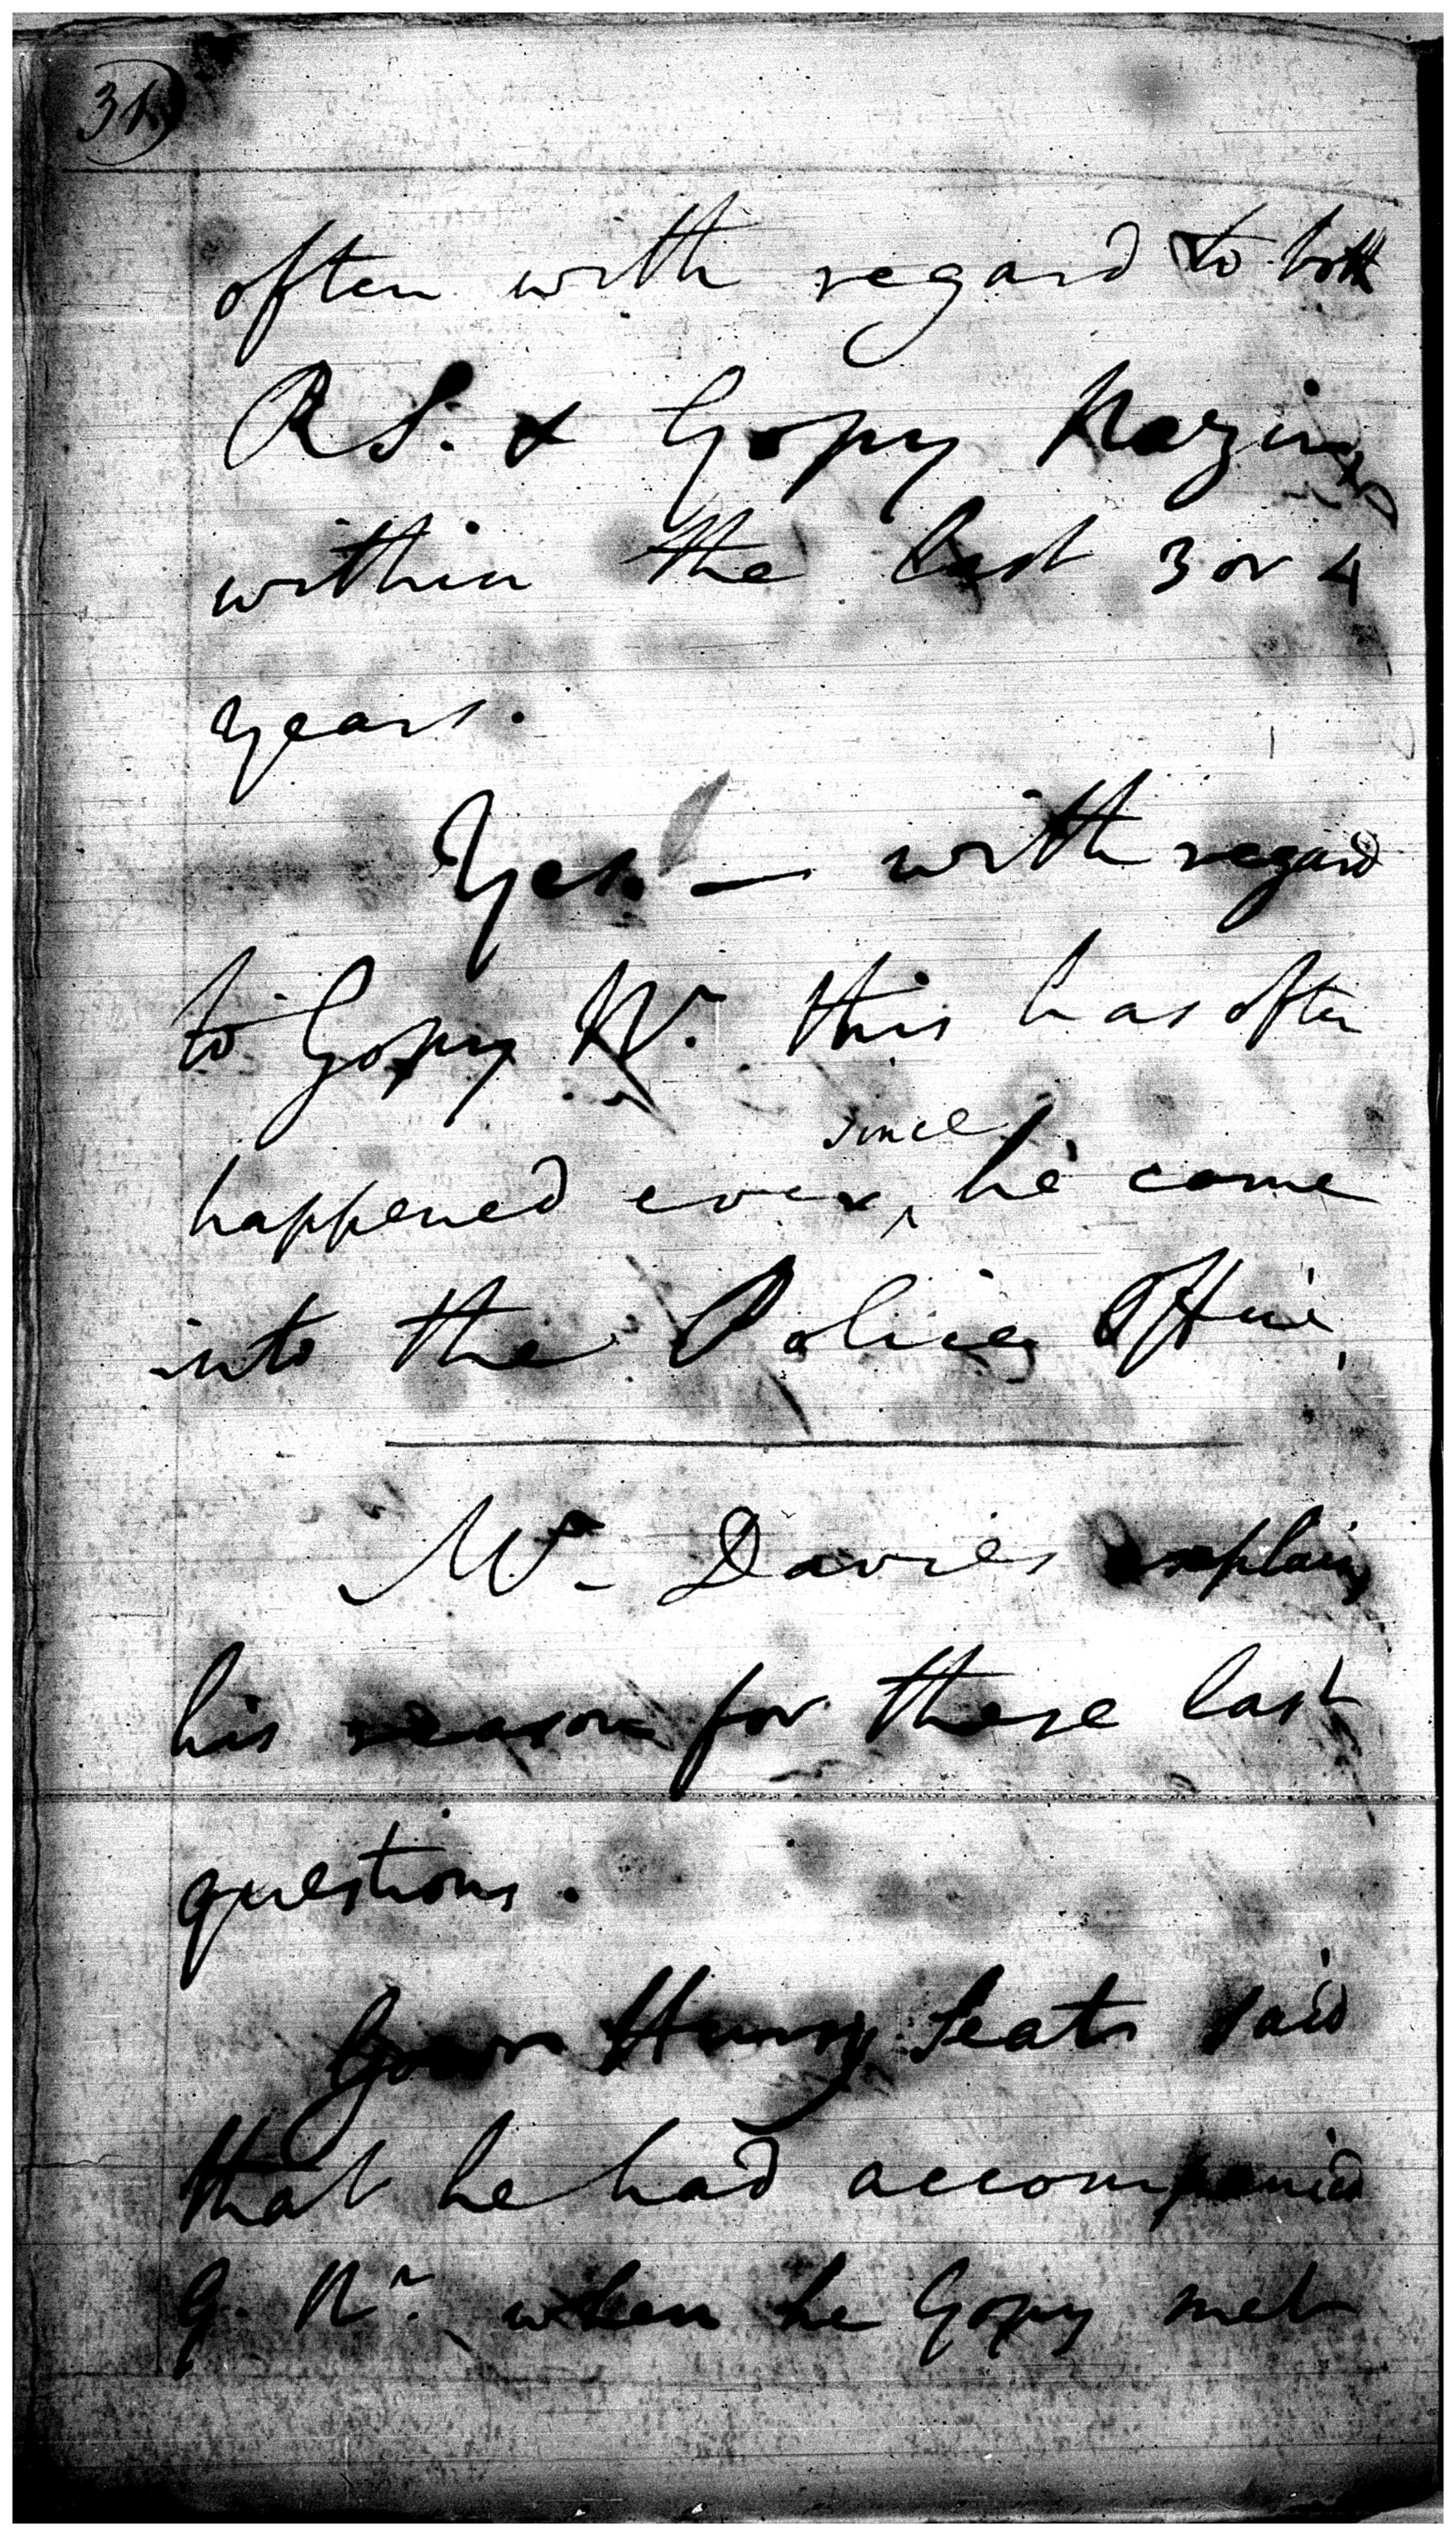 often with regard to both
R S. & Gopy Nazir
within the last 3 or 4
years.
Yes. — with regard
to Gopy Nr. this has often
since
happened ever ‸ he came
into the Police Office
Mr. Davies explains
his reason for these last
questions.
Seats said
that he had accompanied
G. Nr. when he Gopy met